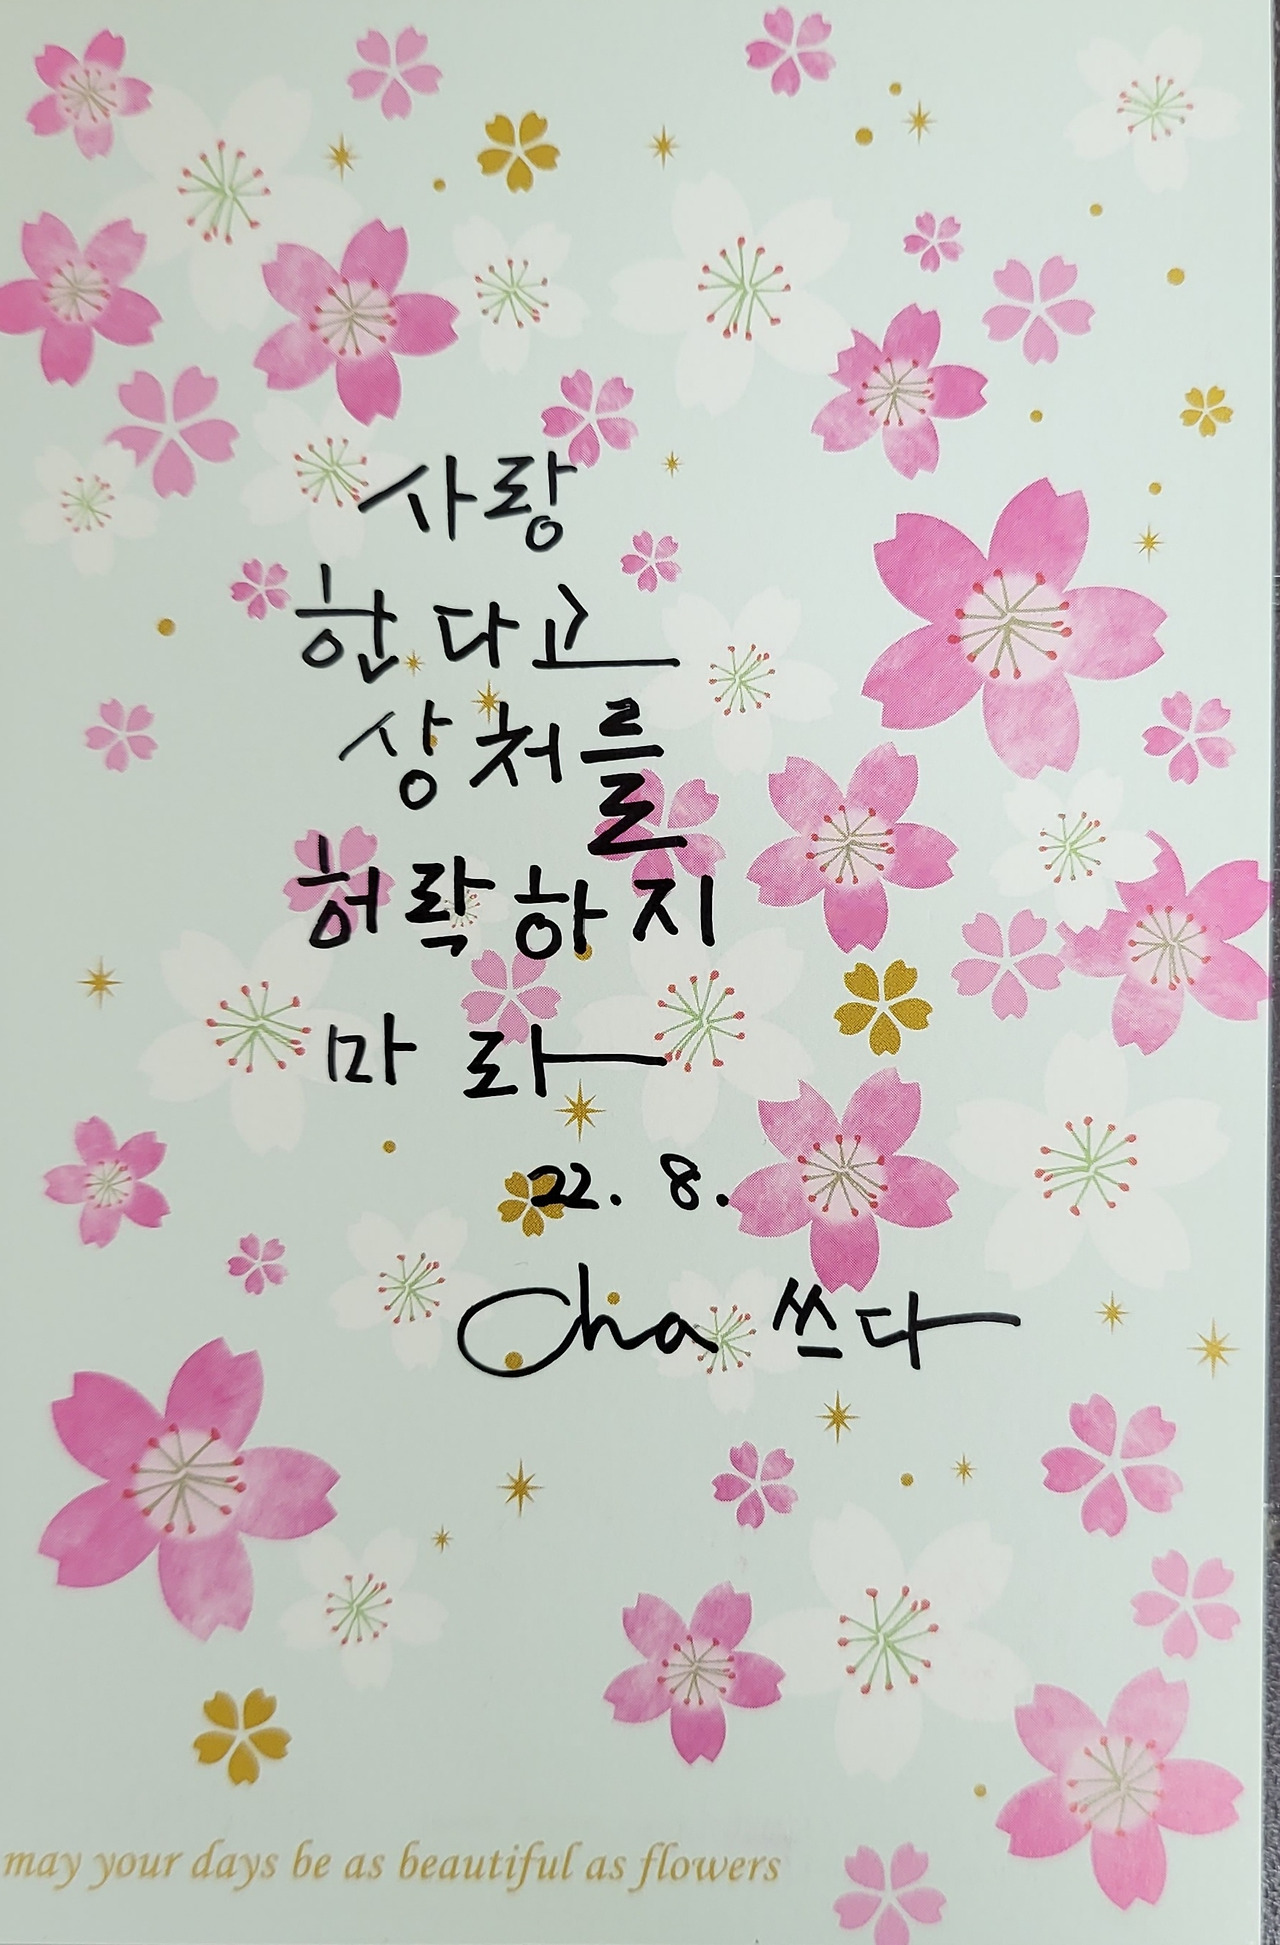 사랑
한다고
상처를
허락하지
마라
22. 8.
Cha 쓰다
may your days be as beautiful as flowers